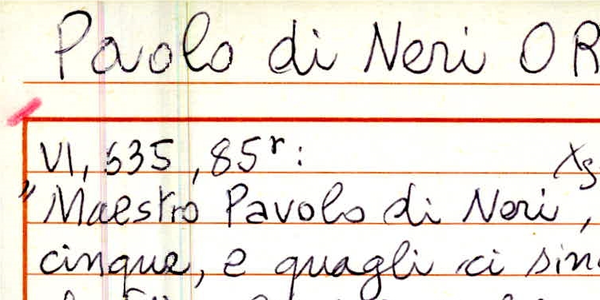 Pavolo di Neri OR
VI, 535, 85r:
"Maestro Pavolo di Neri,
cinque, e quagli ci sin